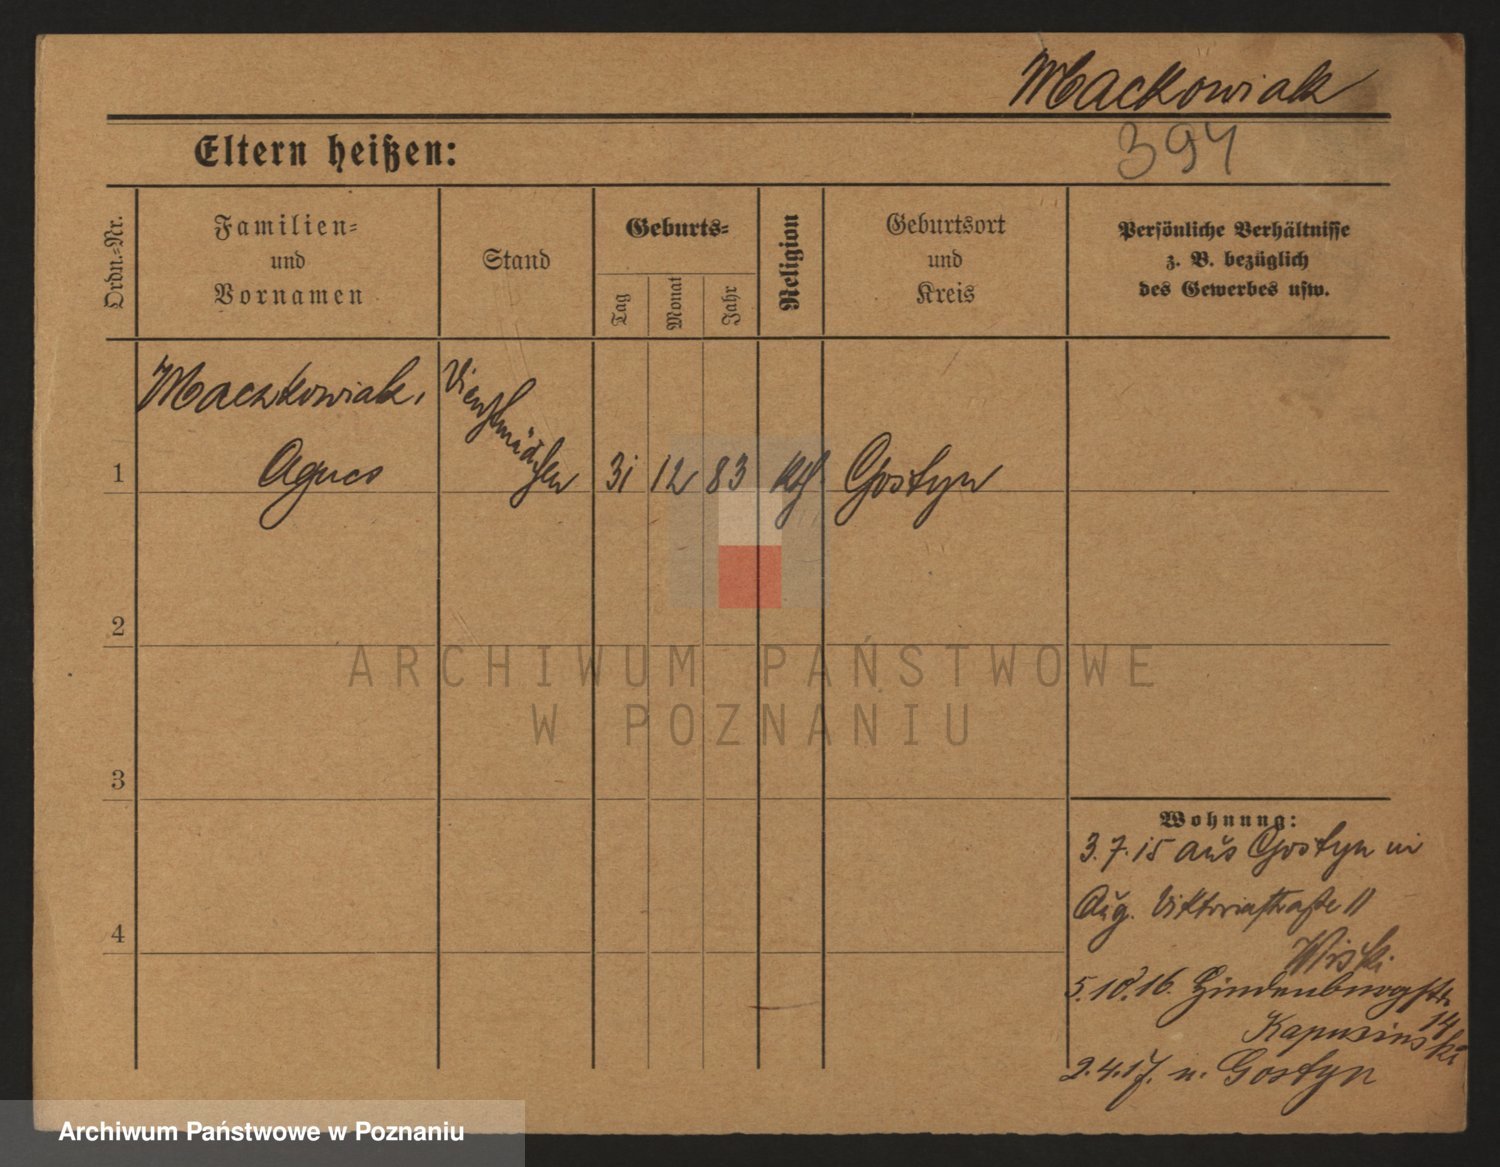 Mackowiak
394
Eltern heißen:
Ordn.-Nr.
Familien-
und
Vornamen
Stand
Geburts-
Tag
Monat
Jahr
Religion
Geburtsort
und
Kreis
Persönliche Verhältnisse
z. B. bezüglich
des Gewerbes usw.
Maczkowiak,
Dienstmädchen
1
Agnes
31
12
83
kth
Gostyn
2
ARCHIWUM PAŃSTWOWE
W POZNANIU
3
Wohnung:
3.7.15 aus Gostyn in
Aug. Viktoriastraße 11
4
5.10.16. Hindenburgstr.
14
Kapusinski
2.4.17. n. Gostyn
Archiwum Państwowe w Poznaniu